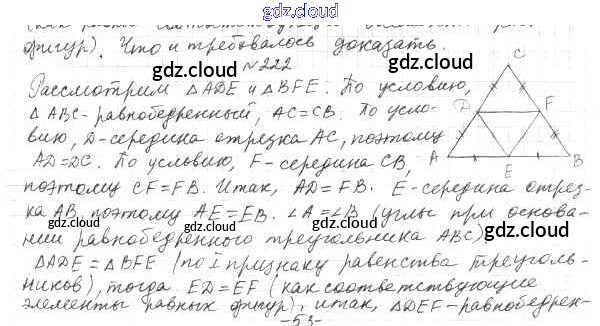 gdz.cloud
фигур). Что и требовалось доказать.
gdz.cloud gdz.cloud
№222
Рассмотрим △ADE и △BFE. По условию,
△ABC - равнобедренный, AC=CB. По усло-
вию, D-середина отрезка AC, поэтому
AD=DC. По условию, F-середина CB,
поэтому CF=FB. Итак, AD=FB. E-середина отрез-
ка AB, поэтому AE=EB. ∠A=∠B (углы при основа-
нии равнобедренного треугольника ABC)
△ADE = △BFE (по I признаку равенства треуголь-
ников), тогда ED=EF (как соответствующие
элементы равных фигур), итак, △DEF-равнобедрен-
-53-
C
D F
A E B
gdz.cloud gdz.cloud
gdz.cloud gdz.cloud
gdz.cloud gdz.cloud
gdz.cloud gdz.cloud
gdz.cloud